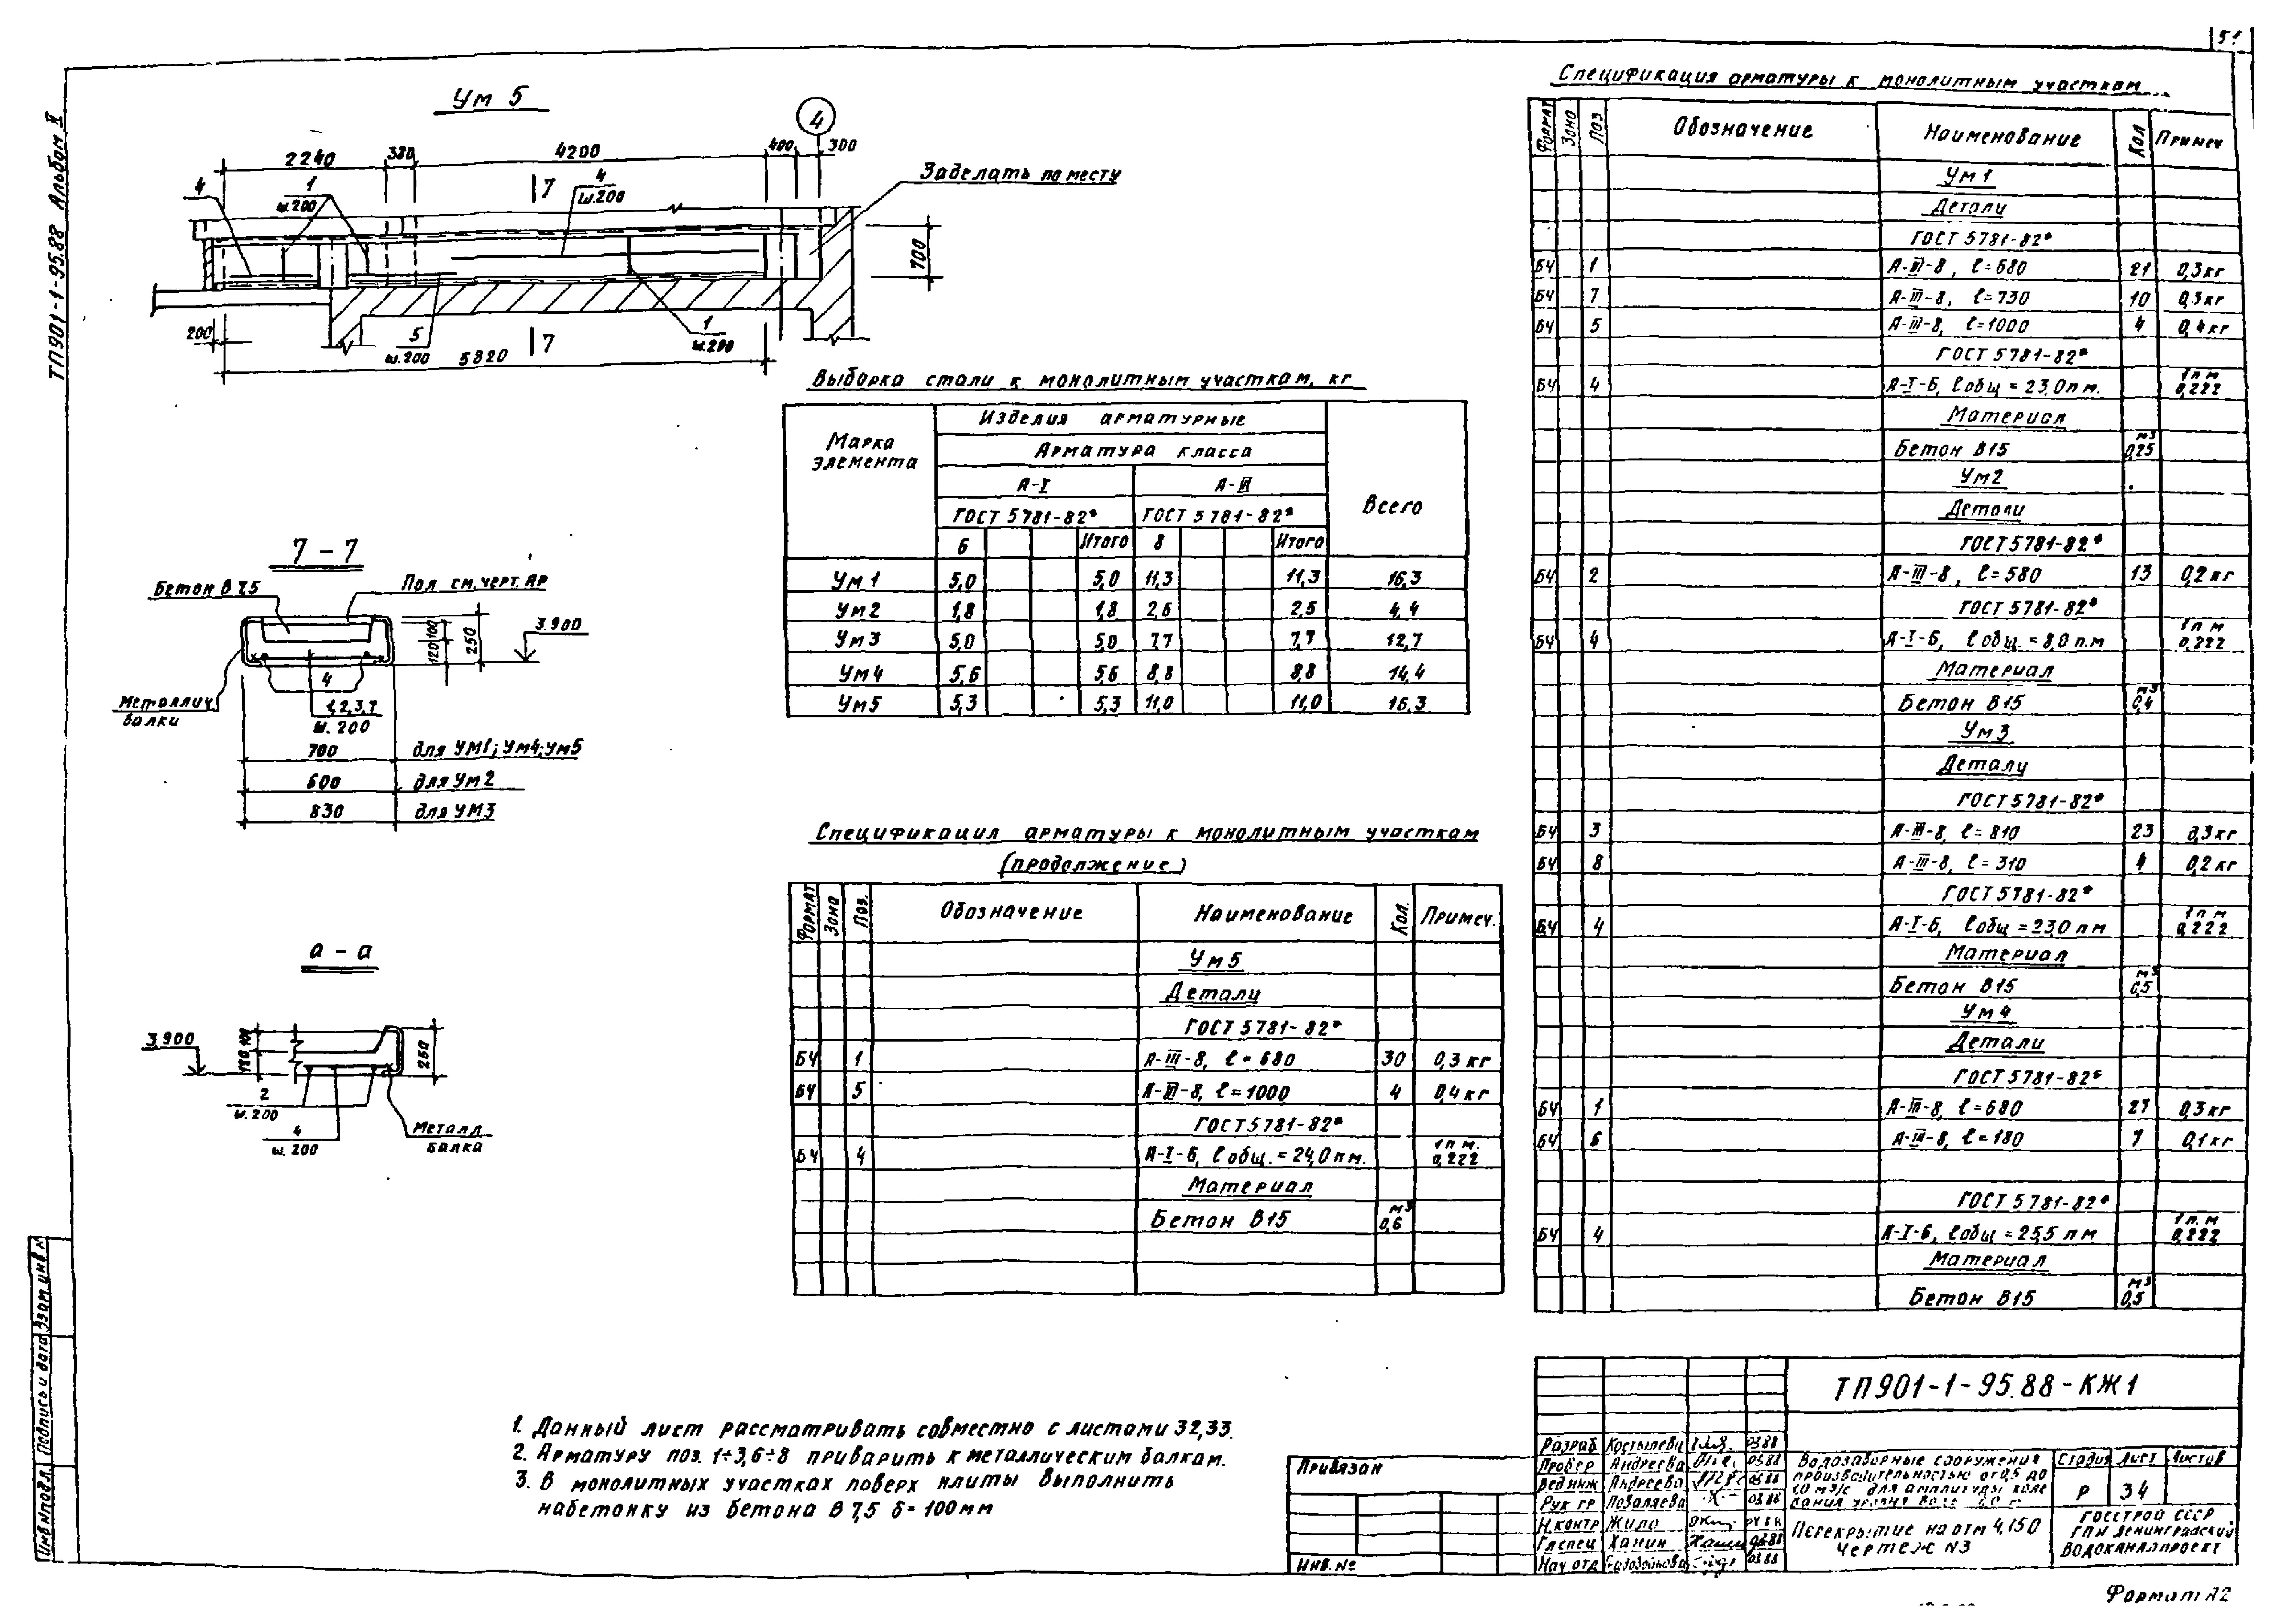 51
ТП901-1-95.88 Альбом II
Ум 5
2240
380
4200
400
300
4
4
1
ш.200
7
4
ш.200
Заделать по месту
700
200
5
ш.200
7
1
ш.200
5820
7-7
Бетон В 7,5
Пол см. черт. АР
120 100
250
3.900
4
Металлич.
балки
1,2,3,7
ш. 200
700 для Ум1; Ум4; Ум5
600 для Ум2
830 для УМ3
а-а
3.900
120 100
250
2
ш.200
4
ш.200
Металл
балка
Выборка стали к монолитным участкам, кг
Марка элемента
Изделия арматурные
Всего
Арматура класса
А-I А-III
ГОСТ 5781-82* ГОСТ 5781-82*
6 Итого 8 Итого
Ум1 5,0 5,0 11,3 11,3 16,3
Ум2 1,8 1,8 2,6 2,5 4,4
Ум3 5,0 5,0 7,7 7,7 12,7
Ум4 5,6 5,6 8,8 8,8 14,4
Ум5 5,3 5,3 11,0 11,0 16,3
Спецификация арматуры к монолитным участкам
(продолжение)
Формат Зона Поз. Обозначение Наименование Кол. Примеч.
Ум5
Детали
ГОСТ 5781-82*
БЧ 1 А-III-8, ℓ=680 30 0,3 кг
БЧ 5 А-III-8, ℓ=1000 4 0,4 кг
ГОСТ 5781-82*
БЧ 4 А-I-6, ℓ общ. = 24,0 пм. 1 п м. 0,222
Материал
Бетон В15 м³ 0,6
Спецификация арматуры к монолитным участкам
Формат Зона Поз Обозначение Наименование Кол Примеч
Ум1
Детали
ГОСТ 5781-82*
БЧ 1 А-III-8, ℓ=680 21 0,3 кг
БЧ 7 А-III-8, ℓ=730 10 0,3 кг
БЧ 5 А-III-8, ℓ=1000 4 0,4 кг
ГОСТ 5781-82*
БЧ 4 А-I-6, ℓ общ = 23,0 п м. 1 п м 0,222
Материал
Бетон В15 м³ 0,25
Ум2
Детали
ГОСТ 5781-82*
БЧ 2 А-III-8, ℓ=580 13 0,2 кг
ГОСТ 5781-82*
БЧ 4 А-I-6, ℓ общ. = 8,0 п.м 1 п м 0,222
Материал
Бетон В15 м³ 0,4
Ум3
Детали
ГОСТ 5781-82*
БЧ 3 А-III-8, ℓ=810 23 0,3 кг
БЧ 8 А-III-8, ℓ=310 4 0,2 кг
ГОСТ 5781-82*
БЧ 4 А-I-6, ℓ общ = 23,0 п м 1 п м 0,222
Материал
Бетон В15 м³ 0,5
Ум4
Детали
ГОСТ 5781-82*
БЧ 1 А-III-8, ℓ=680 27 0,3 кг
БЧ 6 А-III-8, ℓ=180 7 0,1 кг
ГОСТ 5781-82*
БЧ 4 А-I-6, ℓ общ = 25,5 п м 1 п. м 0,222
Материал
Бетон В15 м³ 0,5
1. Данный лист рассматривать совместно с листами 32,33.
2. Арматуру поз. 1÷3,6÷8 приварить к металлическим балкам.
3. В монолитных участках поверх плиты выполнить
набетонку из бетона В 7,5 δ=100мм
Взам инв №
Подпись и дата
Инв № подл.
Привязан
Инв. №
ТП901-1-95.88-КЖ1
Разраб 03.88
Провер Андреева 03.88
Вед инж Андреева 03.88
Рук гр Поваляева 03.88
Н. контр Жило 04.88
Гл спец Ханин 03.88
Нач отд 03.88
Водозаборные сооружения
производительностью от 0,5 до
1,0 м³/с для амплитуды колебания уровня воды
Стадия Лист Листов
Р 34
Перекрытие на отм 4,150
Чертеж N3
Госстрой СССР
ГПИ Ленинградский
Водоканалпроект
Формат А2